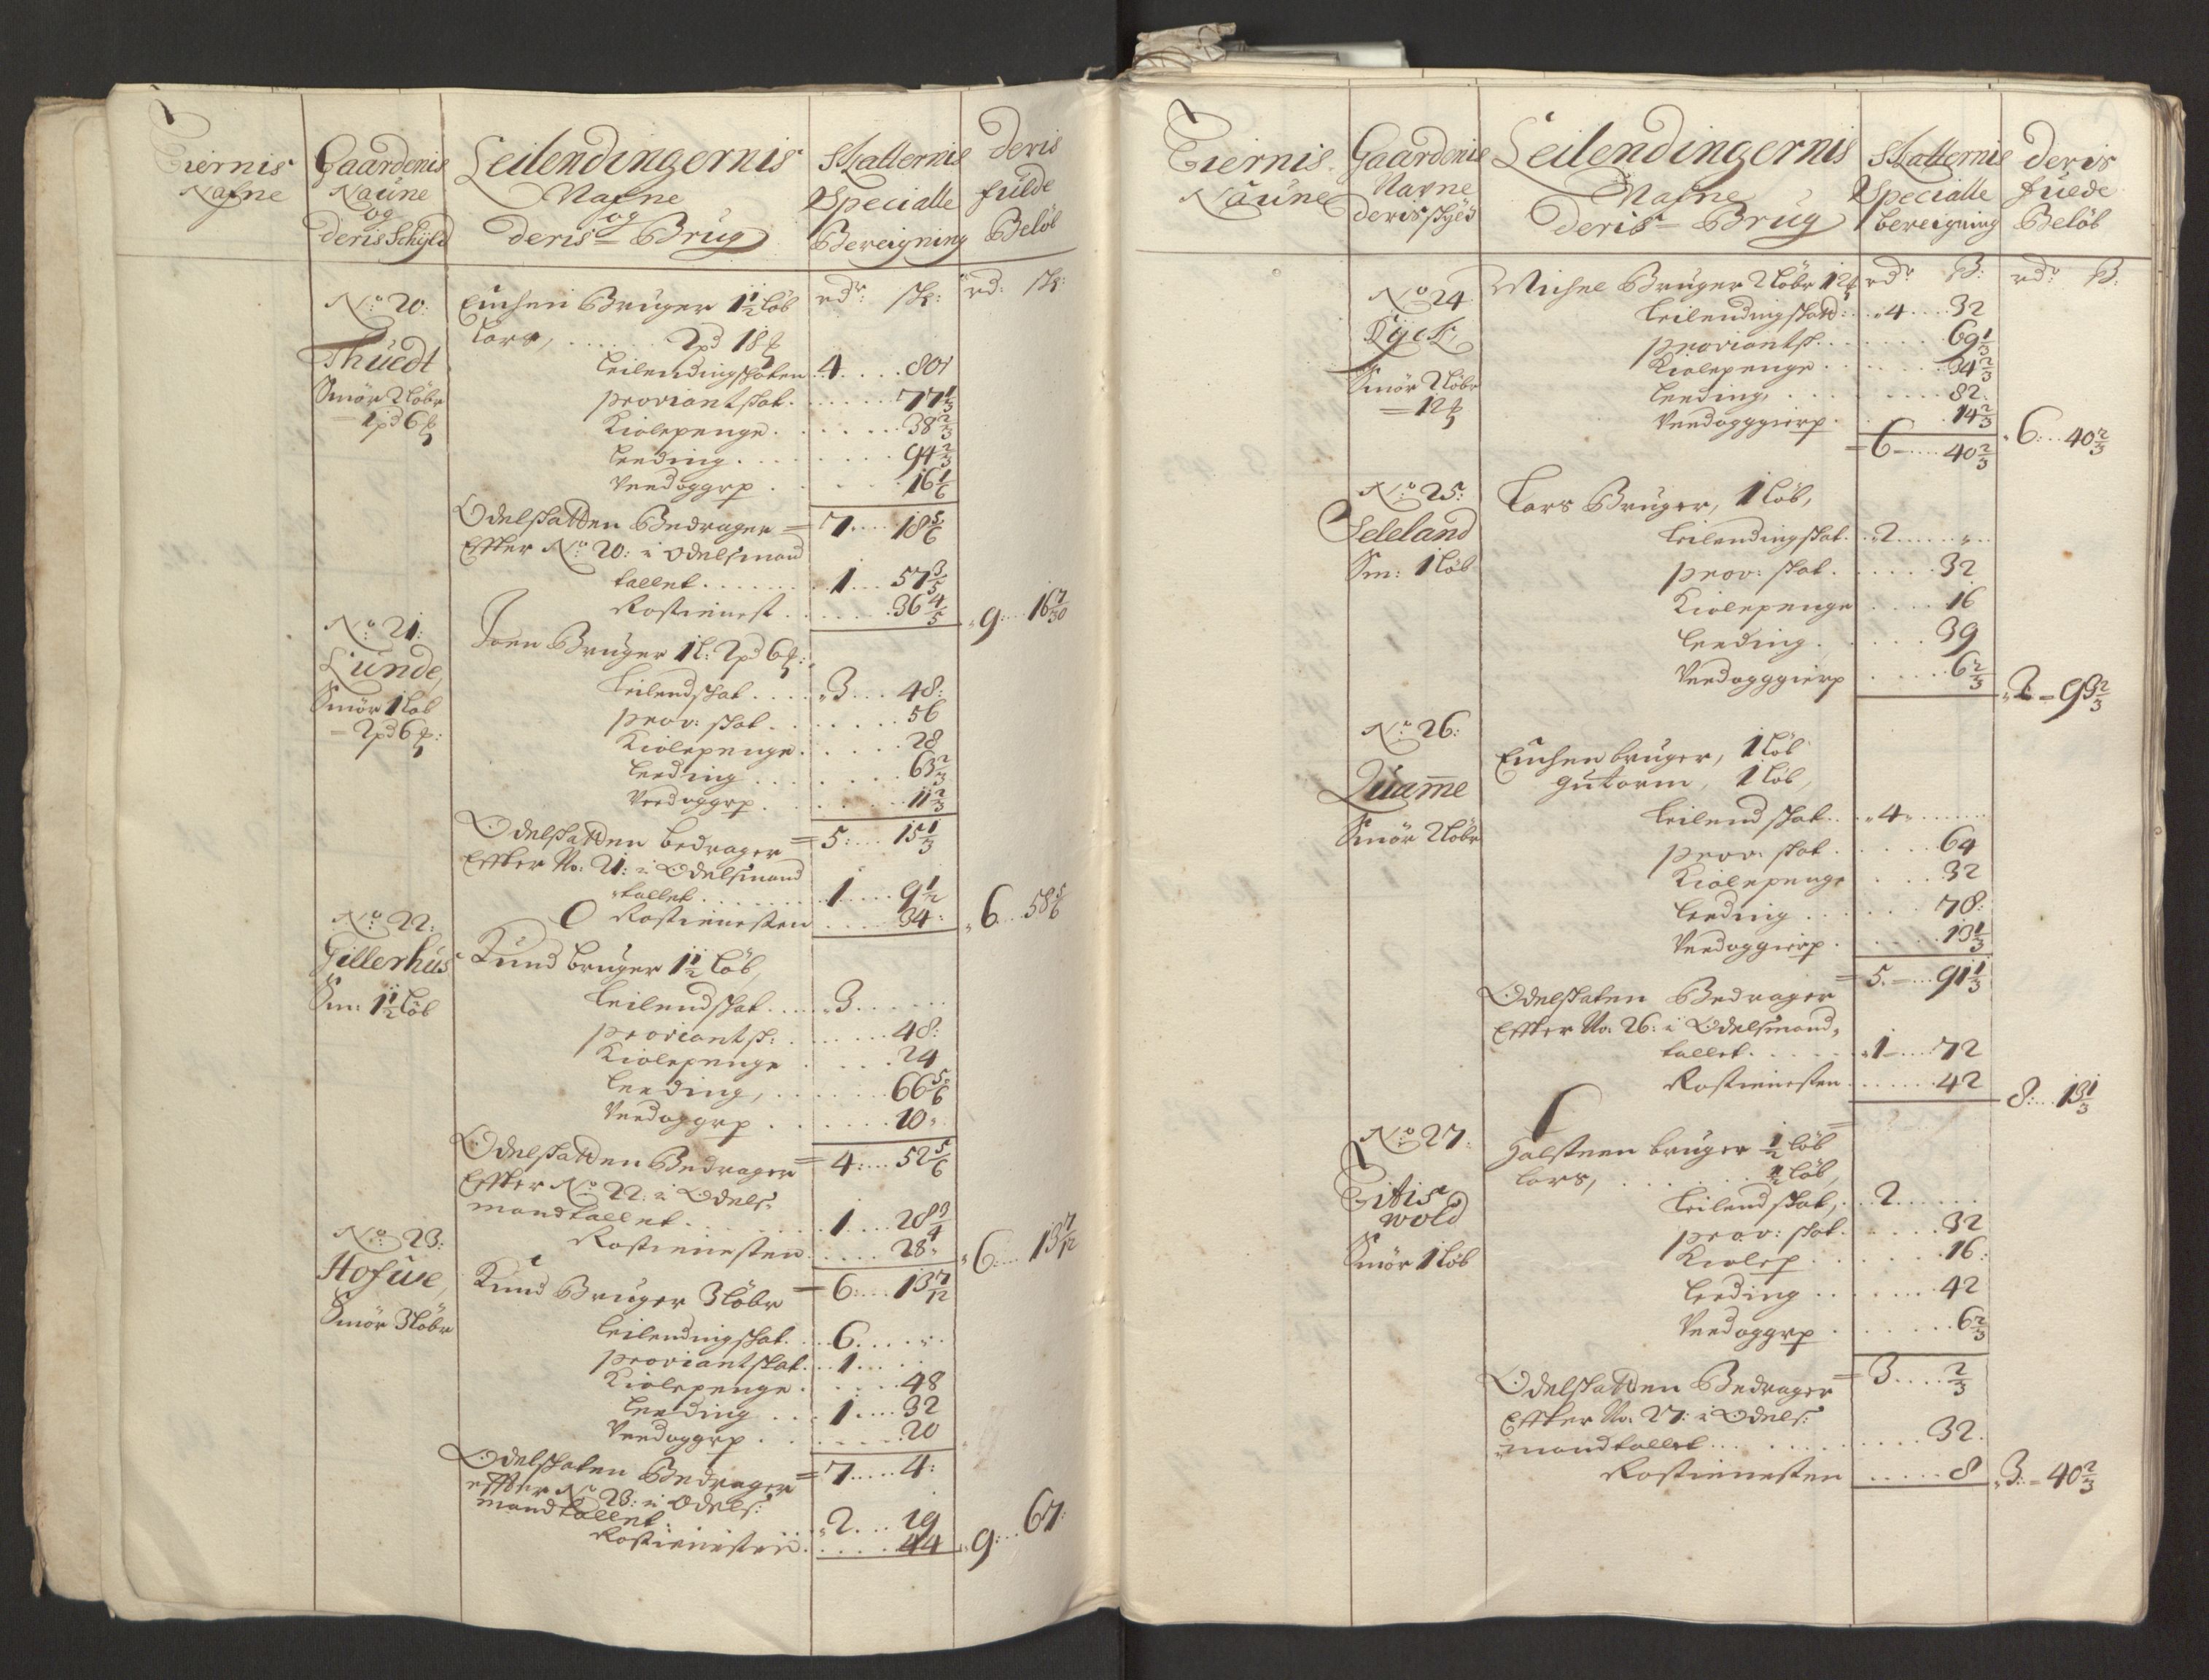 Eiernis Nafne
Gaardenis Naune og deris Schyld
Leilendingernis Nafne og deris Brug
Skatternis Specialle Bereigning
deris fulde Beløb
rdr: sk:
rd: sk:
No 20:
Thuedt
Smør 2 løbr
1 pd 6 ℔
Euchen Bruger 1½ løb
Lars, . . . . . 2 pd 18 ℔
Leilendingskaten 4 . . . 80
proviantskat . . . . . 77⅓
Kiolepenge . . . . . . 38⅔
Leeding . . . . . . . 94⅔
Veedoggrp . . . . . 16⅙
= 7 . . . 18⅚
Odelskatten Bedrager
Effter No: 20: i Odelsmand
tallet . . . . . . . 1 . . 57⅗
Rostienest . . . . . . 36⅘
9 . . . 16 7/30
No 21:
Lunde,
Smør 1 løb
= 2 pd 6 ℔:
Joen Bruger 1 l: 2 pd 6 ℔:
Leilendskat . . . . 3 . . . 48:
prov: skat . . . . . . . . 56
Kiolepenge . . . . . . 28
Leeding . . . . . . . 63⅔
Veedoggrp . . . . . . 11⅔
= 5: . . . 15⅓
Odelskatten bedrager
Effter No: 21: i Odelsmand
tallet . . . . . . . 1 . . . 9½
Rostienesten . . . . . 34:
6 . . . 58⅚
No 22:
Gillerhus
Sm: 1½ løb
Knud bruger 1½ løb,
Leilendskat . . . . 3 . . . . .
proviantsk: . . . . . . 48:
Kiolepenge . . . . 24
Leeding, . . . . . . 66⅚
Veedoggrp . . . . . . 10 .
= 4: . . . 52⅚
Odelskatten Bedrager
Effter No 22: i Odels:
mandtallet . . . . . . 1 . . . 28¾
Rostienesten . . . . . 28 .
6 . . . 13 7/12
= 6: . . . 13 7/12
No 23:
Hofue,
Smør 3 løbr
Knud Bruger 3 løbr
Leilendingskat . . . 6 . . . .
proviantskat . . 1 . . . .
Kiolepenge . . . . . 48
Leeding . . . 1 . . . 32
Veedoggrp . . . . . . 20
= 7 . . . . 4:
Odelskaten Bedrager
effter No 23: i Odels:
mandtallet . . . . 2 . . . 19
Rostienesten . . . . . 44
9: . . . 67:
Eiernis Naune
Gaardenis Navne deris skyld
Leilendingernis Nafne deris Brug
Skatternis Specialle bereigning
deris fulde Beløb
rdr ß:
rdr ß:
No 24
Kyck,
Smør 2 løbr
= 12 ℔
Michel Bruger 2 løbr 12 ℔
Leilendingskatt: . . 4 . . . 32
proviantsk . . . . . . . 69⅓
Kiolepenge . . . . . . . 34⅔
Leeding, . . . . . . . 82.
Veedogggierp . . . . 14⅔
= 6 — . . . 40⅔
6: . . 40⅔
No 25:
Seleland
Sm: 1 løb
Lars Bruger, 1 løb,
Leilendingskat . . 2 . . . . . .
prov: skat . . . . . . 32
Kiolepenge . . . . 16
Leeding . . . . . 39
Veedogggierp . . . . . 6⅔
2 = 93⅔
No 26:
Quame
Smør 2 løbr
Euchen bruger, 1 løb
Gutorm, 1 løb,
Leilendskat . . . 4 . . . . . . .
prov: skat . . . . . 64
Kiolepenge . . . . 32
Leeding . . . . . . 78:
Veedoggierp . . . . . 13⅓
= 5 . — . . . 91⅓
Odelskaten Bedrager
Effter No: 26: i Odelsmand,
tallet . . . . . 1 — . . . 72
Rostienesten . . . . . . 42
8: . . . 13⅓
No 27:
Titis wold
Smør 1 løb
Halsteen bruger ½ løb
Lars, . . . . . . ½ løb,
Leilendskat, . . 2 . . . . .
prov: skat . . . . . 32
Kiolep . . . . . . . 16:
Leeding . . . . . . . 42
Veedoggrp . . . . . . . 6⅔
= 3 . . . . ⅔
Odelskatten Bedrager
Effter No: 27: i Odels:
mandtallet . . . . . . . . 32.
Rostienesten . . . . . 8
3: = 40⅔